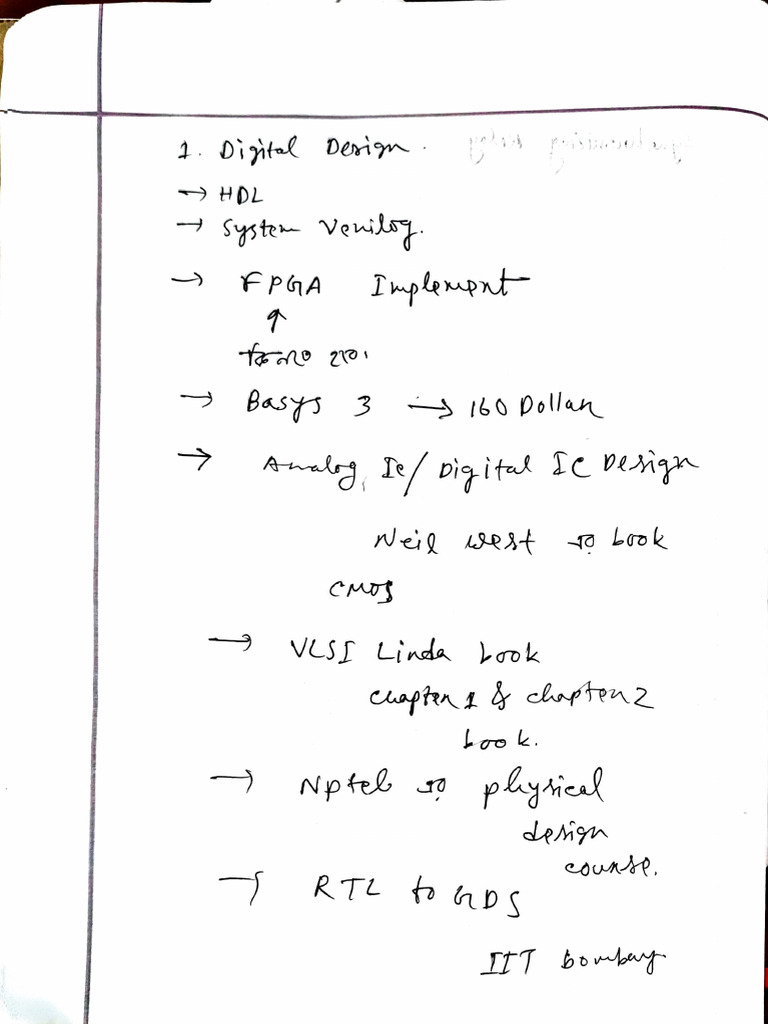 1. Digital Design.
→ HDL
→ System Verilog.
→ FPGA Implement
↑
কিনতে হবে।
→ Basys 3 → 160 Dollar
→ Analog Ic/ Digital IC Design
Neil west এর book
CMOS
→ VLSI Linda book
chapter 1 & chapter 2
book.
→ Nptel এর physical
design
course.
→ RTL to GDS
IIT bombay